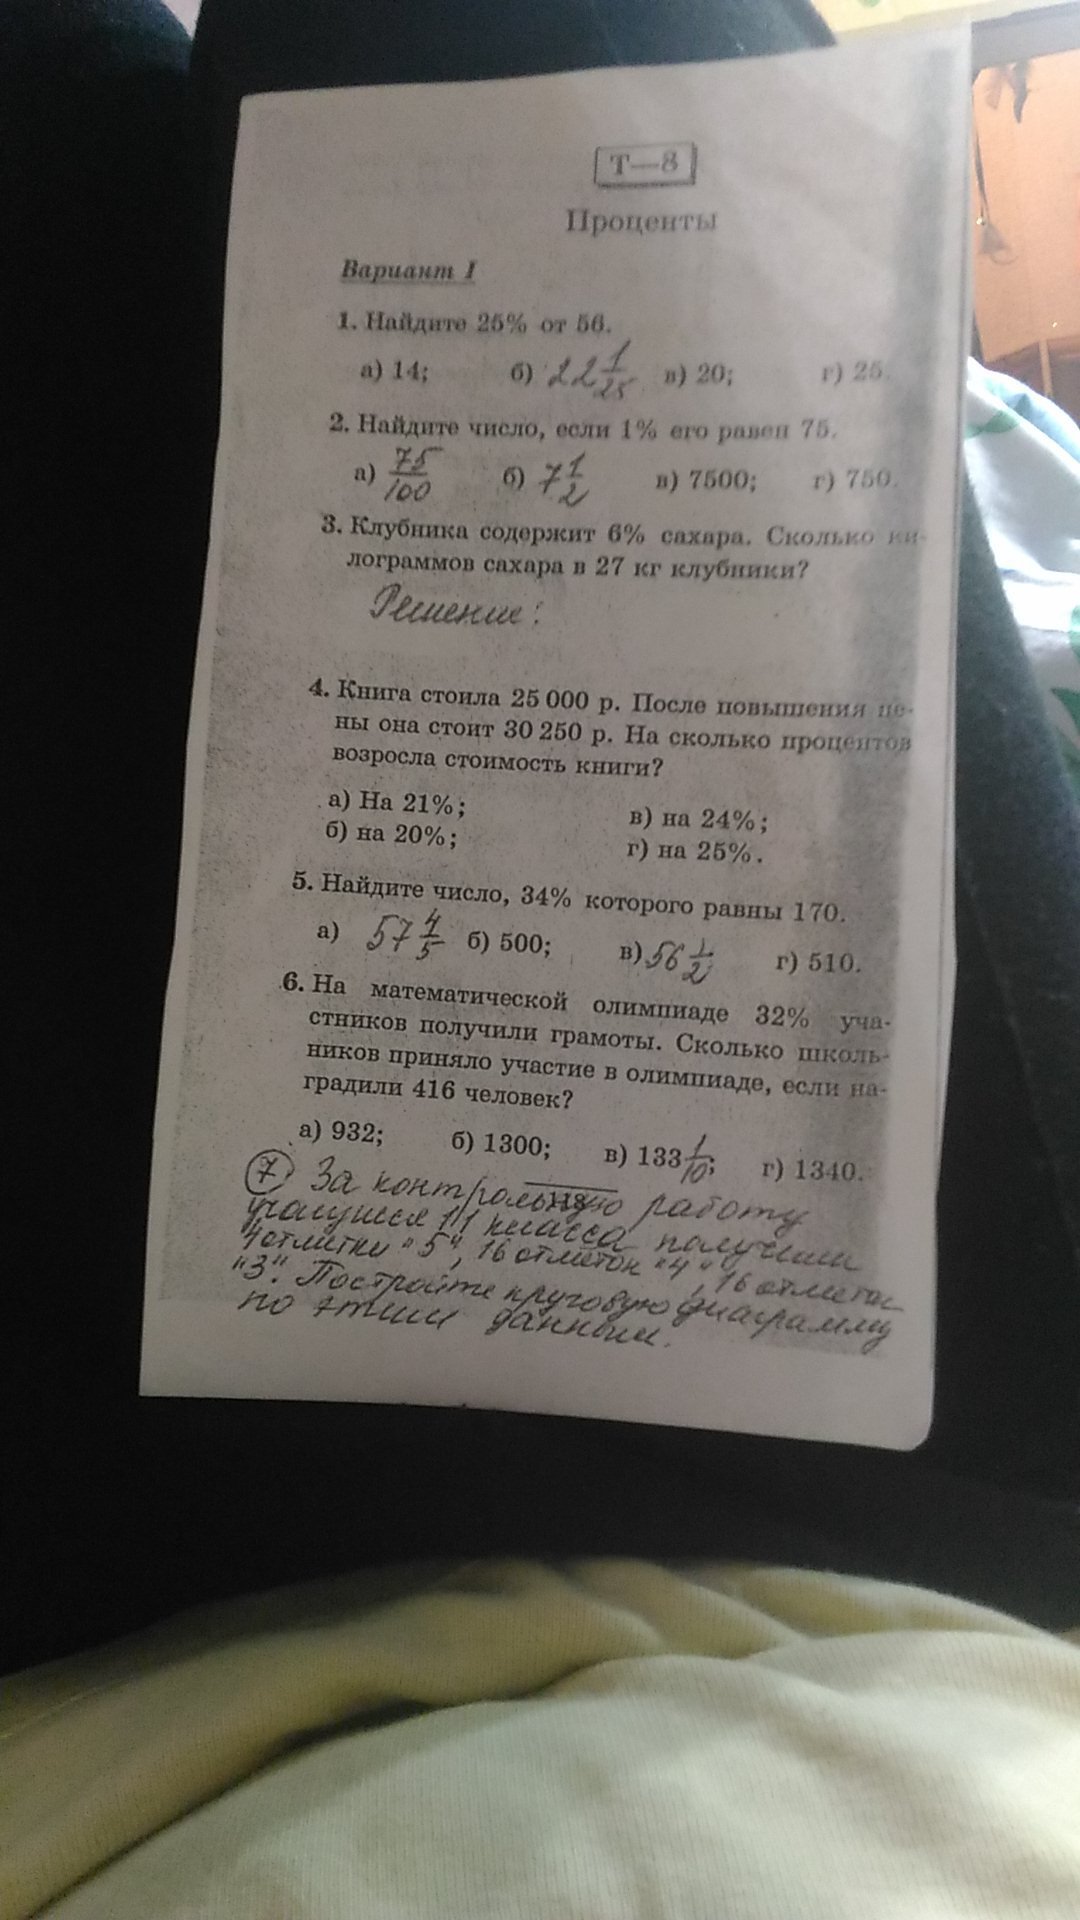 Т—8
Проценты
Вариант I
1. Найдите 25% от 56.
а) 14; б) 22 1/25 в) 20; г) 25.
2. Найдите число, если 1% его равен 75.
а) 75/100 б) 7 1/2 в) 7500; г) 750.
3. Клубника содержит 6% сахара. Сколько ки-
лограммов сахара в 27 кг клубники?
Решение:
4. Книга стоила 25 000 р. После повышения це-
ны она стоит 30 250 р. На сколько процентов
возросла стоимость книги?
а) На 21%; в) на 24%;
б) на 20%; г) на 25%.
5. Найдите число, 34% которого равны 170.
а) 57 4/5 б) 500; в) 56 1/2 г) 510.
6. На математической олимпиаде 32% уча-
стников получили грамоты. Сколько школь-
ников приняло участие в олимпиаде, если на-
градили 416 человек?
а) 932; б) 1300; в) 133 1/10; г) 1340.
7 За контрольную работу
учащиеся 11 класса получили
4 отметки "5", 16 отметок "4", 16 отметок
"3". Постройте круговую диаграмму
по этим данным.